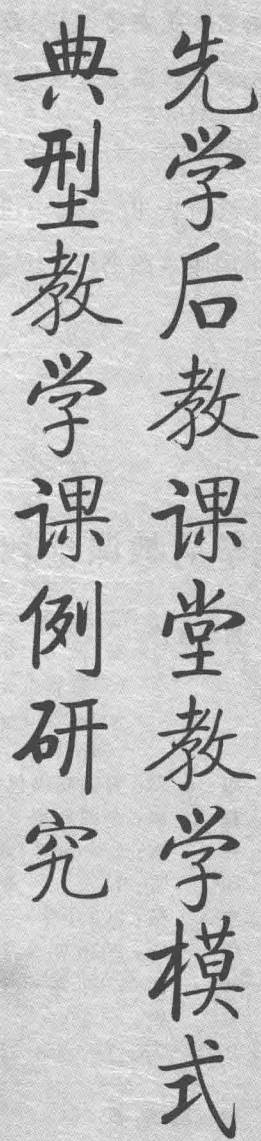 先学后教课堂教学模式
典型教学课例研究